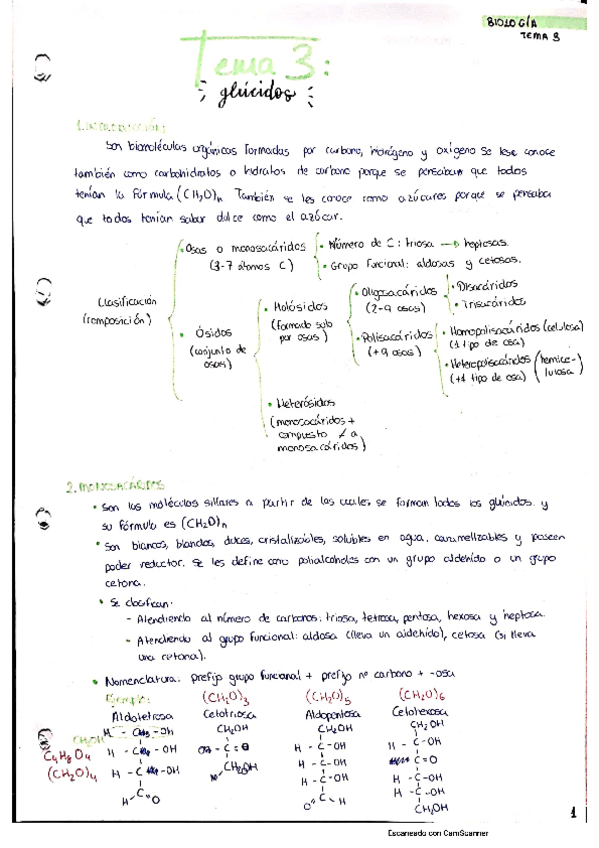 BIOLOGÍA
TEMA 3
Tema 3:
glúcidos
1. INTRODUCCIÓN:
Son biomoléculas orgánicas formadas por carbono, hidrógeno y oxígeno Se les conoce
también como carbohidratos o hidratos de carbono porque se pensaban que todos
tenían la fórmula (CH2O)n. También se les conoce como azúcares porque se pensaba
que todos tenían sabor dulce como el azúcar.
Clasificación
(composición)
• Osas o monosacáridos
(3-7 átomos C)
• Número de C: triosa → heptosas.
• Grupo funcional: aldosas y cetosas.
• Ósidos
(conjunto de
osas)
• Holósidos
(formado solo
por osas)
• Oligosacáridos
(2-9 osas)
• Disacáridos
• Trisacáridos
• Polisacáridos
(+9 osas)
• Homopolisacáridos (celulosa)
(1 tipo de osa)
• Heteropolisacáridos (hemice-
(+1 tipo de osa) lulosa)
• Heterósidos
(monosacáridos +
compuesto ≠ a
monosacáridos)
2. MONOSACÁRIDOS
• Son las moléculas sillares a partir de las cuales se forman todos los glúcidos. y
su fórmula es (CH2O)n
• Son blancos, blandos, dulces, cristalizables, solubles en agua, caramelizables y poseen
poder reductor. Se les define como polialcoholes con un grupo aldehído o un grupo
cetona.
• Se clasifican:
- Atendiendo al número de carbonos: triosa, tetrosa, pentosa, hexosa y heptosa.
- Atendiendo al grupo funcional: aldosa (lleva un aldehído), cetosa (si lleva
una cetona).
• Nomenclatura: prefijo grupo funcional + prefijo nº carbono + -osa
Ejemplo: (CH2O)3 (CH2O)5 (CH2O)6
Aldotetrosa Cetotriosa Aldopentosa Cetohexosa
CH2OH CH2OH CH2OH
C4H8O4
(CH2O)4
H - C - OH
C = O
CH2OH
H - C - OH
H - C - OH
H - C - OH
C = O
H - C - OH
H - C - OH
H - C - OH
CH2OH
1
Escaneado con CamScanner